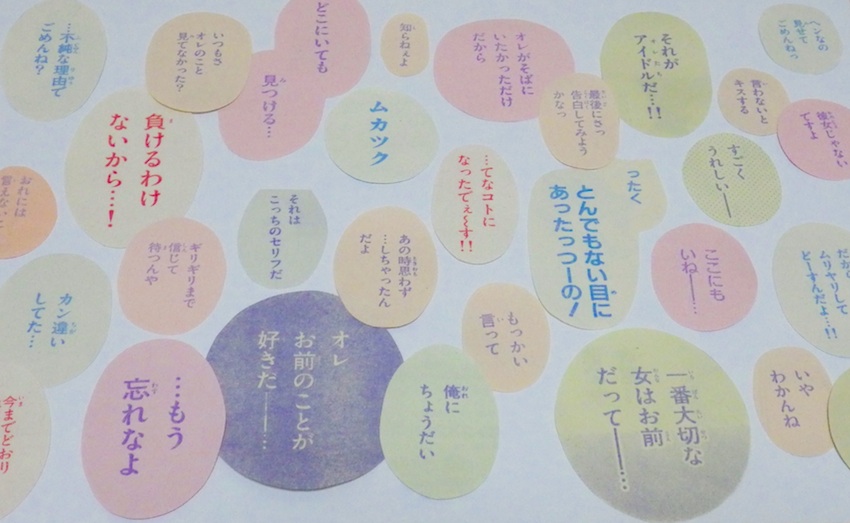 …不純な理由で
ごめんね？
いつもさ
オレのこと
見てなかった？
どこにいても
見つける…
知らねぇよ
オレがそばに
いたかっただけ
だから
それが
アイドルだ…!!
ヘンなの
見せて
ごめんねっ
言わないと
キスする
彼女じゃない
ですよ
最後にさっ
告白してみよう
かなっ
ムカツク
負けるわけ
ないから…！
…てなコトに
なったでぇ〜す!!
ったく
とんでもない目に
あったっつーの！
すごく
うれしい──
おれには
それは
こっちのセリフだ
ギリギリまで
信じて
待つんや
あの時思わず
…しちゃったん
だよ
ここにも
いね──…
ムリヤリして
どーすんだよ…!!
カン違い
してた…
もっかい
言って
オレ
お前のことが
好きだ───…
俺に
ちょうだい
一番大切な
女はお前
だって───…
いや
わかんね
…もう
忘れなよ
今までどおり